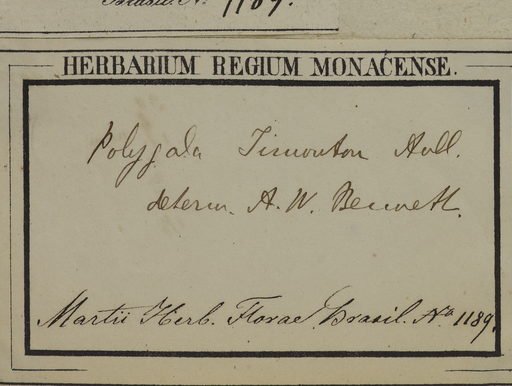 Brasil. No. 1189.
HERBARIUM REGIUM MONACENSE.
Polygala Timoutou Aubl.
determ. A. W. Bennett.
Martii Herb. Florae Brasil. No. 1189.